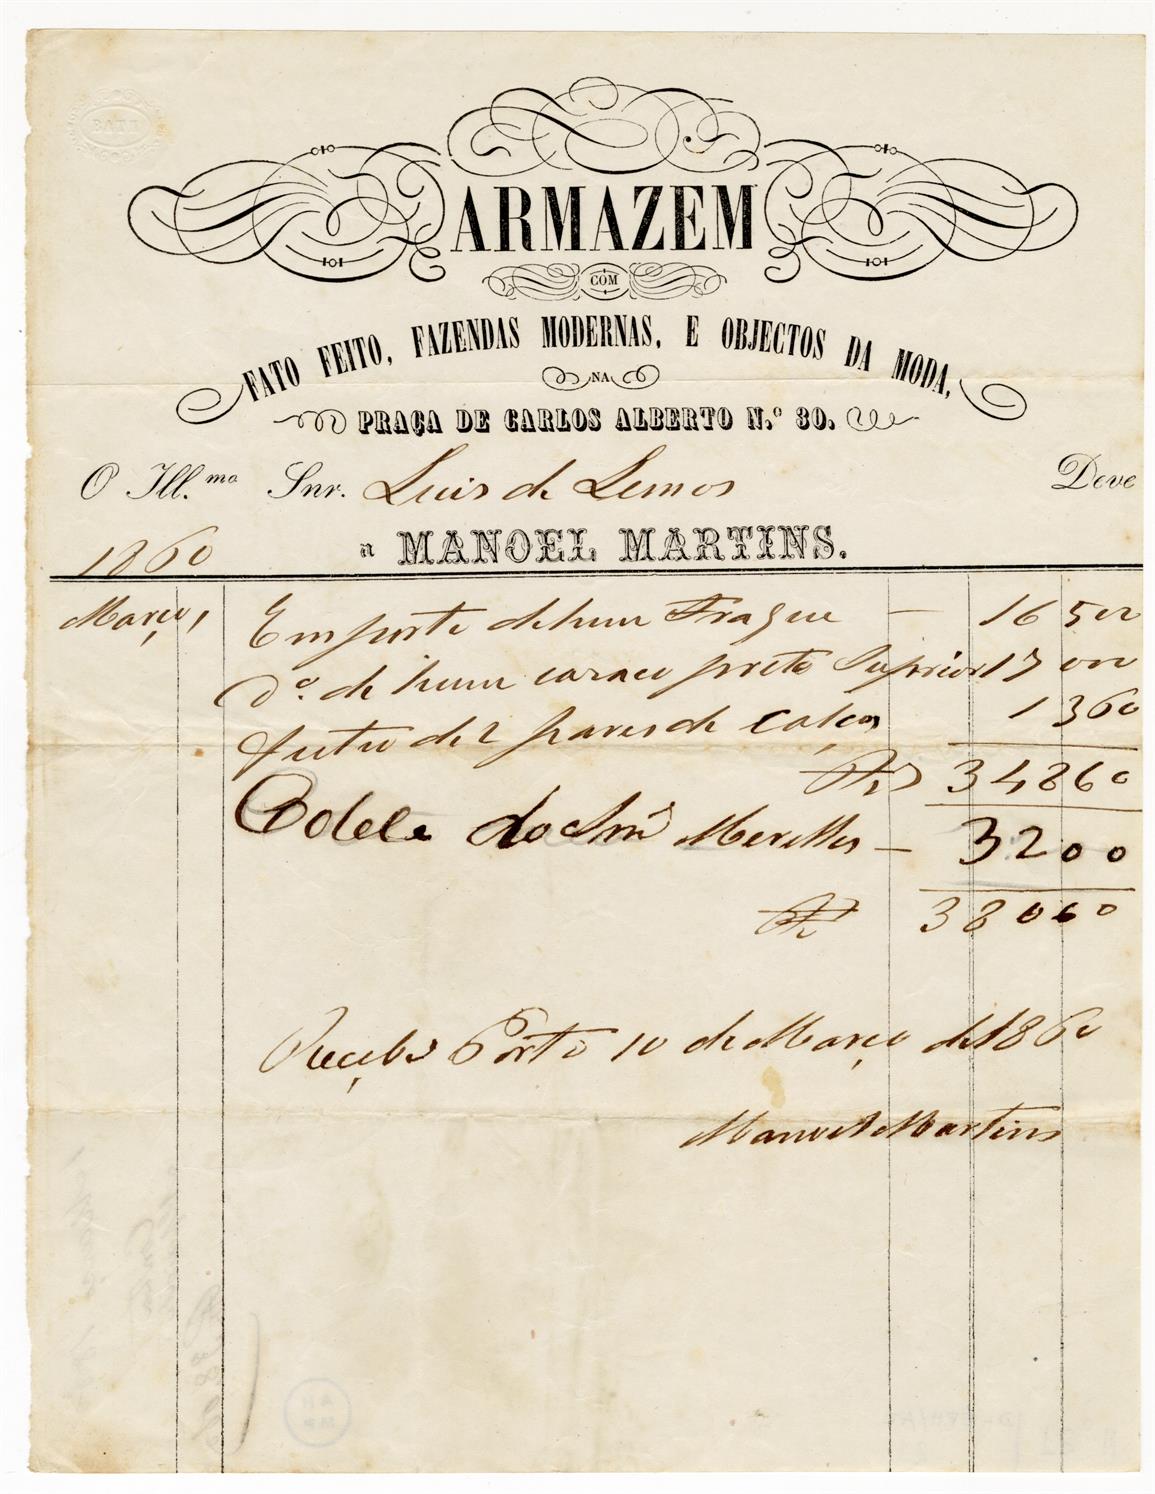 BATH
ARMAZEM
COM
FATO FEITO, FAZENDAS MODERNAS, E OBJECTOS DA MODA,
NA
PRAÇA DE CARLOS ALBERTO N.º 30.
O Ill.mo Snr. Luis de Lemos Deve
1860 a MANOEL MARTINS.
Março 1 Emporte de hum Fraque — 16 500
Dº. de hum cazaco preto Superior 17 000
feitio de 2 pares de calças 1 360
Rs 34860
Colete do Snr Merelles — 3200
Rs 38060
Recebi Porto 10 de Março de 1860
Manoel Martins
AH
MP